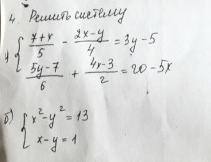 4. Решить систему
а) { (7+x)/5 - (2x-y)/4 = 3y-5
(5y-7)/6 + (4x-3)/2 = 20-5x
б) { x²-y²=13
x-y=1